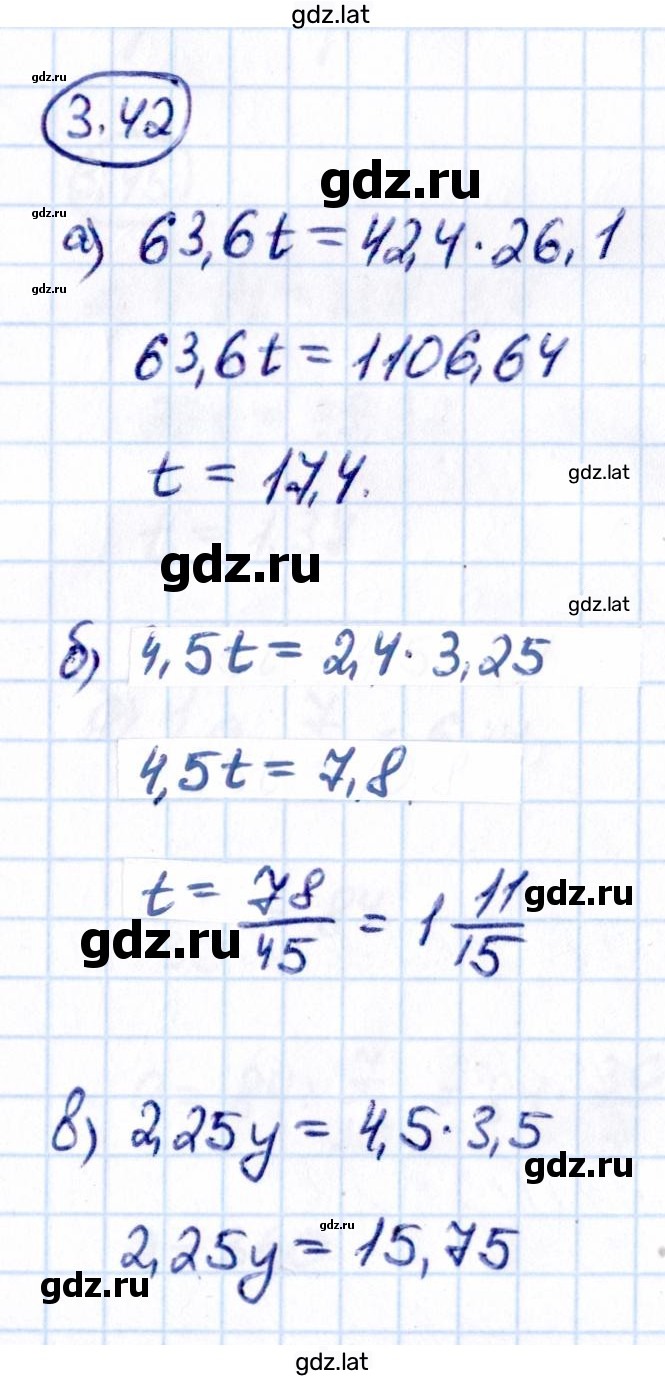 gdz.lat
gdz.ru
3.42
gdz.ru
gdz.ru
а) 63,6t = 42,4 · 26,1
gdz.ru
63,6t = 1106,64
t = 17,4.
gdz.lat
gdz.ru
gdz.lat
б) 4,5t = 2,4 · 3,25
4,5t = 7,8
t = 78/45 = 1 11/15
gdz.ru
gdz.ru
в) 2,25y = 4,5 · 3,5
gdz.ru
gdz.ru
2,25y = 15,75
gdz.ru
gdz.lat